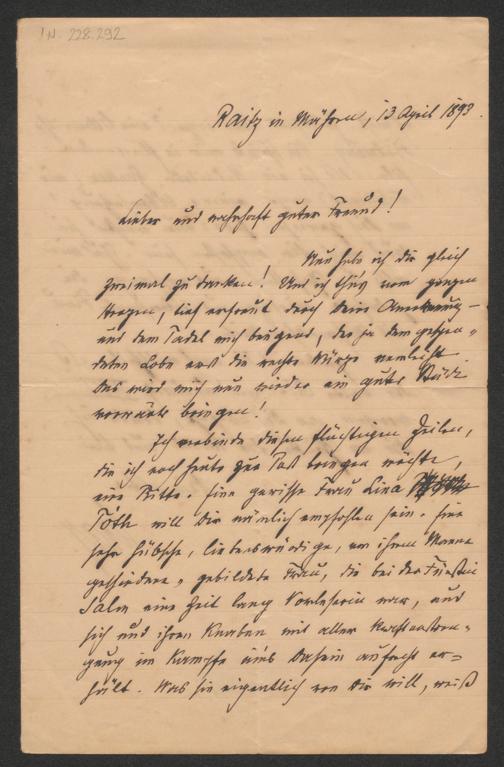 IN. 228.292
Raitz in Mähren, 13 April 1893.
Lieber und wahrhaft guter Freund!
Nun habe ich dir gleich
zweimal zu danken! Und ich thu's vom ganzen
Herzen, tief erfreut durch Deine Anerkennung –
und dem Tadel mich beugend, der ja dem gespen-
deten Lobe erst die rechte Würze verleiht.
Das wird mich nun wieder ein gutes Stück
vorwärts bringen!
Ich verbinde diesen flüchtigen Zeilen,
die ich noch heute zur Post bringen möchte,
eine Bitte. Eine gewisse Frau Lina
Tóth will Dir nämlich empfohlen sein. Eine
sehr hübsche, liebenswürdige, von ihrem Manne
geschiedene, gebildete Frau, die bei der Fürstin
Salm eine Zeit lang Vorleserin war, und
sich und ihren Knaben mit aller Kraftanstren-
gung im Kampfe um's Dasein aufrecht er-
hält. Was sie eigentlich von Dir will, weiß